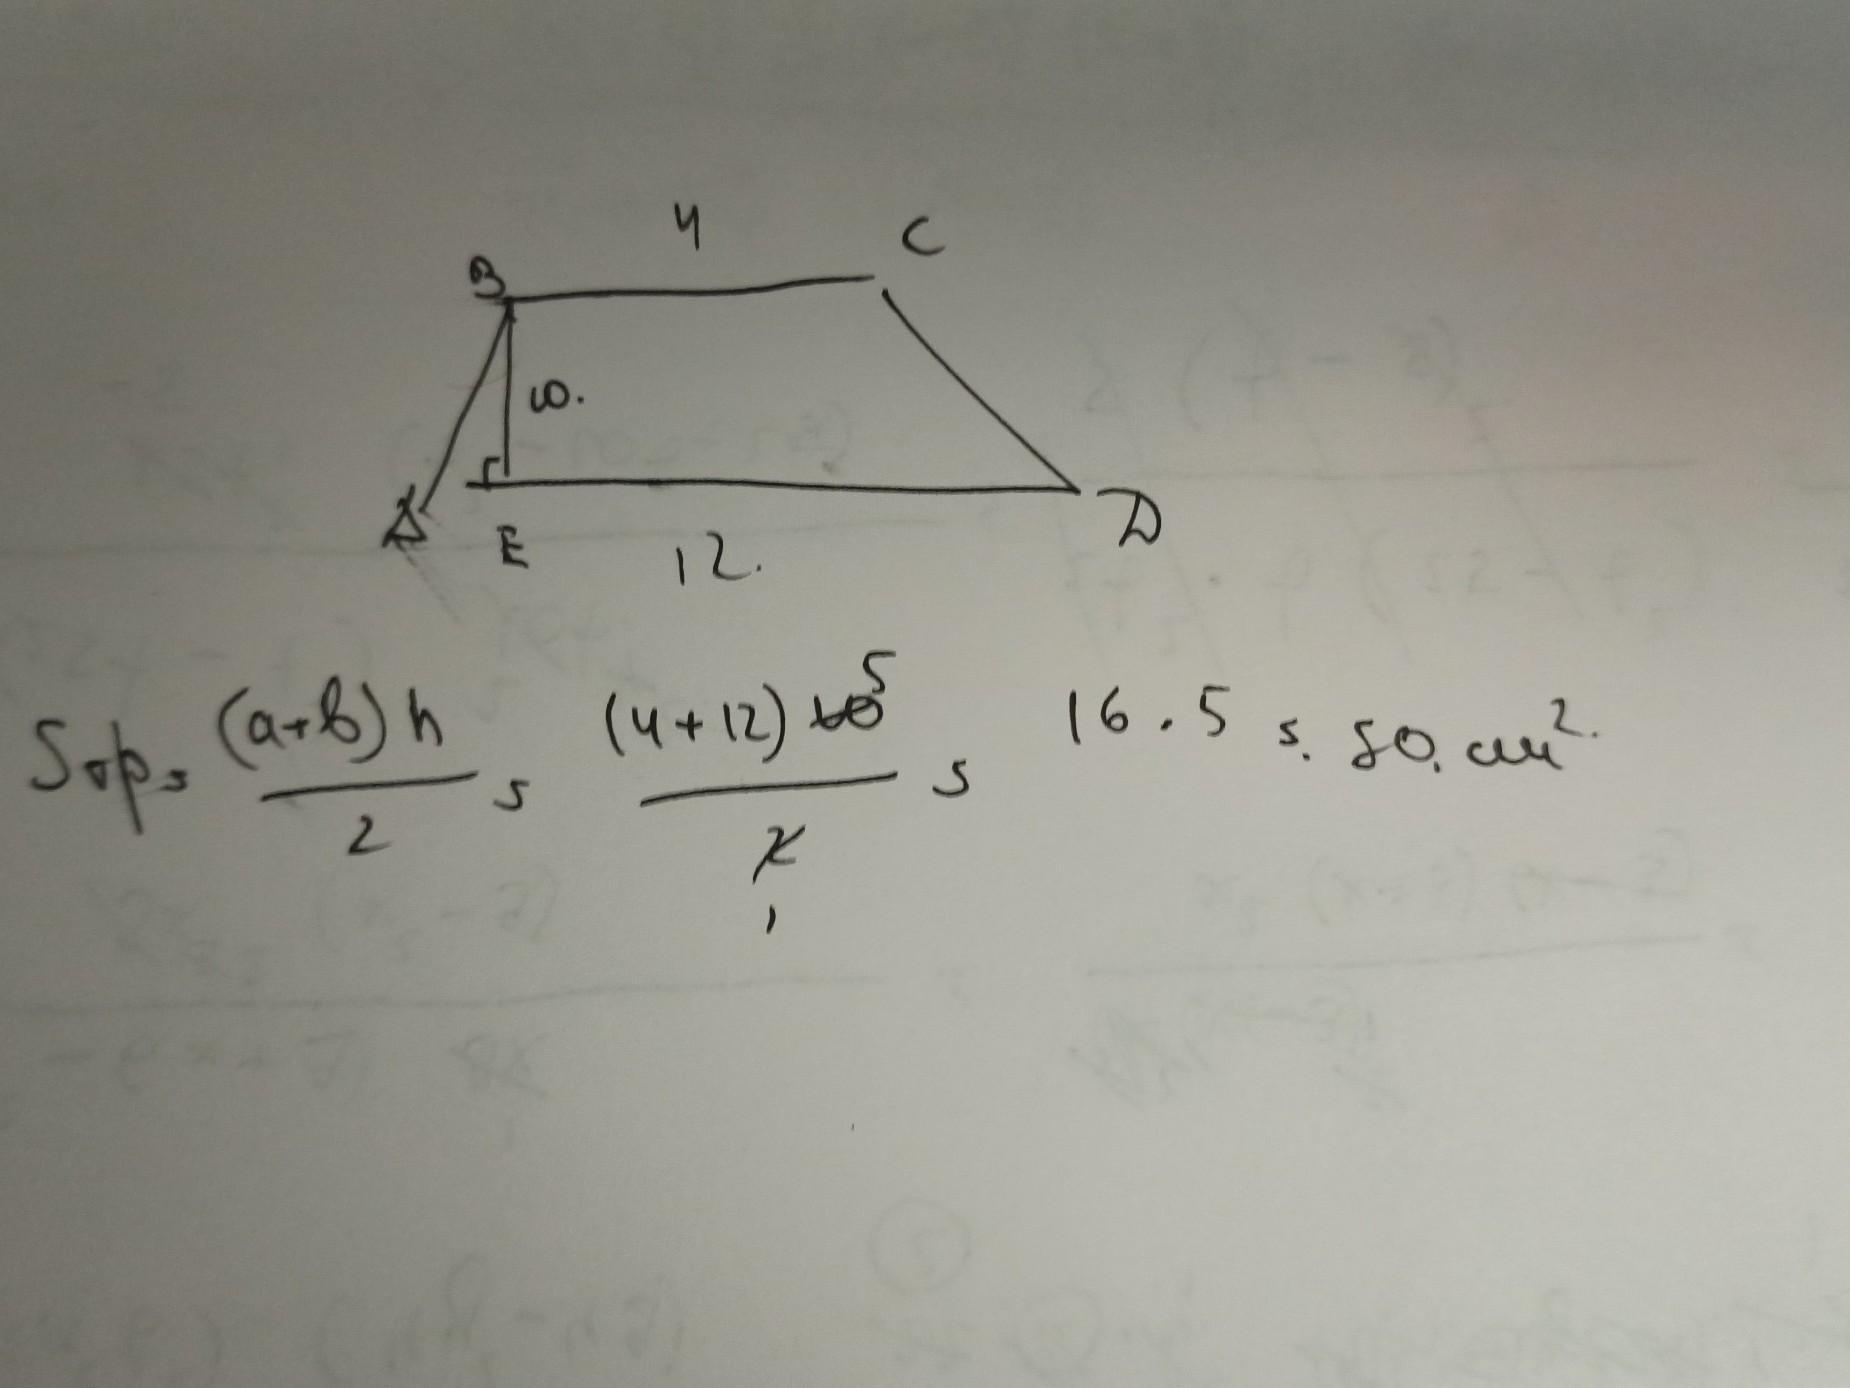 4
B C
10.
A E D
12.
Sтр = (a+b)h / 2 = (4+12) 10 5 / 2 1 = 16 . 5 = 80. см².